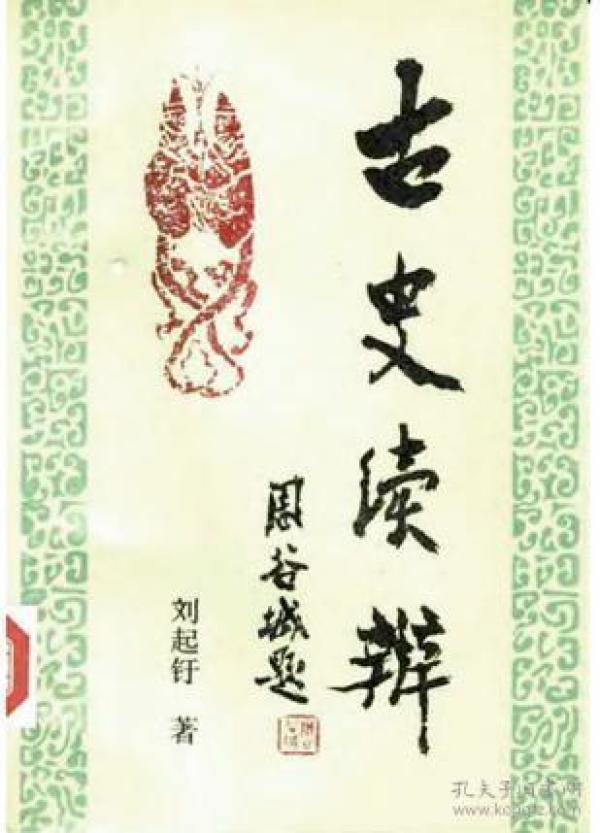 古史续辩
周谷城题
刘起釪 著
孔夫子旧书网
www.kongfz.com